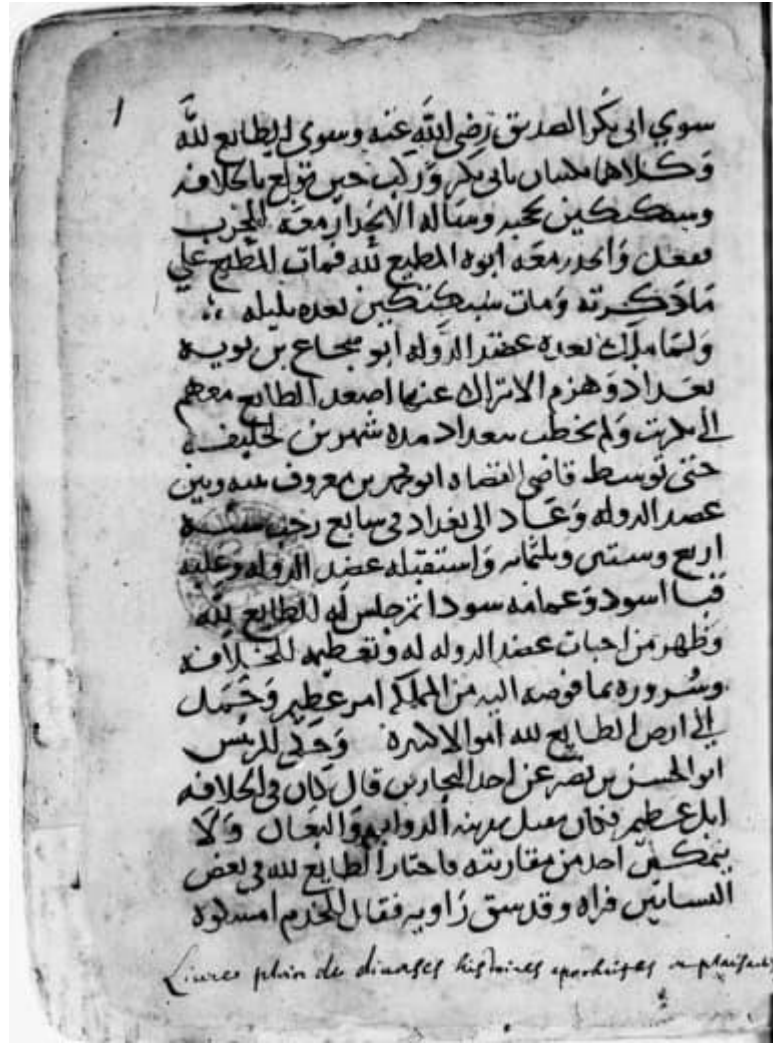 1
سوي ابى بكر الصديق رضى الله عنه وسوى الطايع لله
وكلاهما يكنيان بابى بكر وركب حين بويع بالخلافه
وسبكتكين بحجبه وساله الانحدار معه للحرب
ففعل وانحدر معه ابوه المطيع لله فمات المطيع على
ماذكرته ومات سبكتكين بعده بليله
ولما ملك بعده عضد الدوله ابو شجاع بن بويه
بغداد وهزم الاتراك عنها اصعد الطايع معهم
الى تكريت ولم يخطب ببغداد مده شهرين لخليفه
حتى توسط قاضى القضاه ابو محمد بن معروف بينه وبين
عضد الدوله وعاد الى بغداد فى سابع رجب سنه
اربع وستين وثلثمايه واستقبله عضد الدوله وعليه
قبا اسود وعمامه سودا ثم جلس له للطايع لله
وظهر من اخبات عضد الدوله له وتعظيمه للخلافه
وسروره بما فوضه اليه من المملكه امر عظيم وحمل
الى ارض الطايع لله اموالا كثيرة وحكى للرئيس
ابو الحسن بن نصر عن احد التجار قال كان فى الخلافه
ابل عظيم فكان يقتل الدواب والبغال ولا
يتمكن احد من مقاربته فاجتاز الطايع لله فى بعض
البساتين فراه وقد شق راويه فقال للخدم امسكوه
Livre plein de diverses histoires